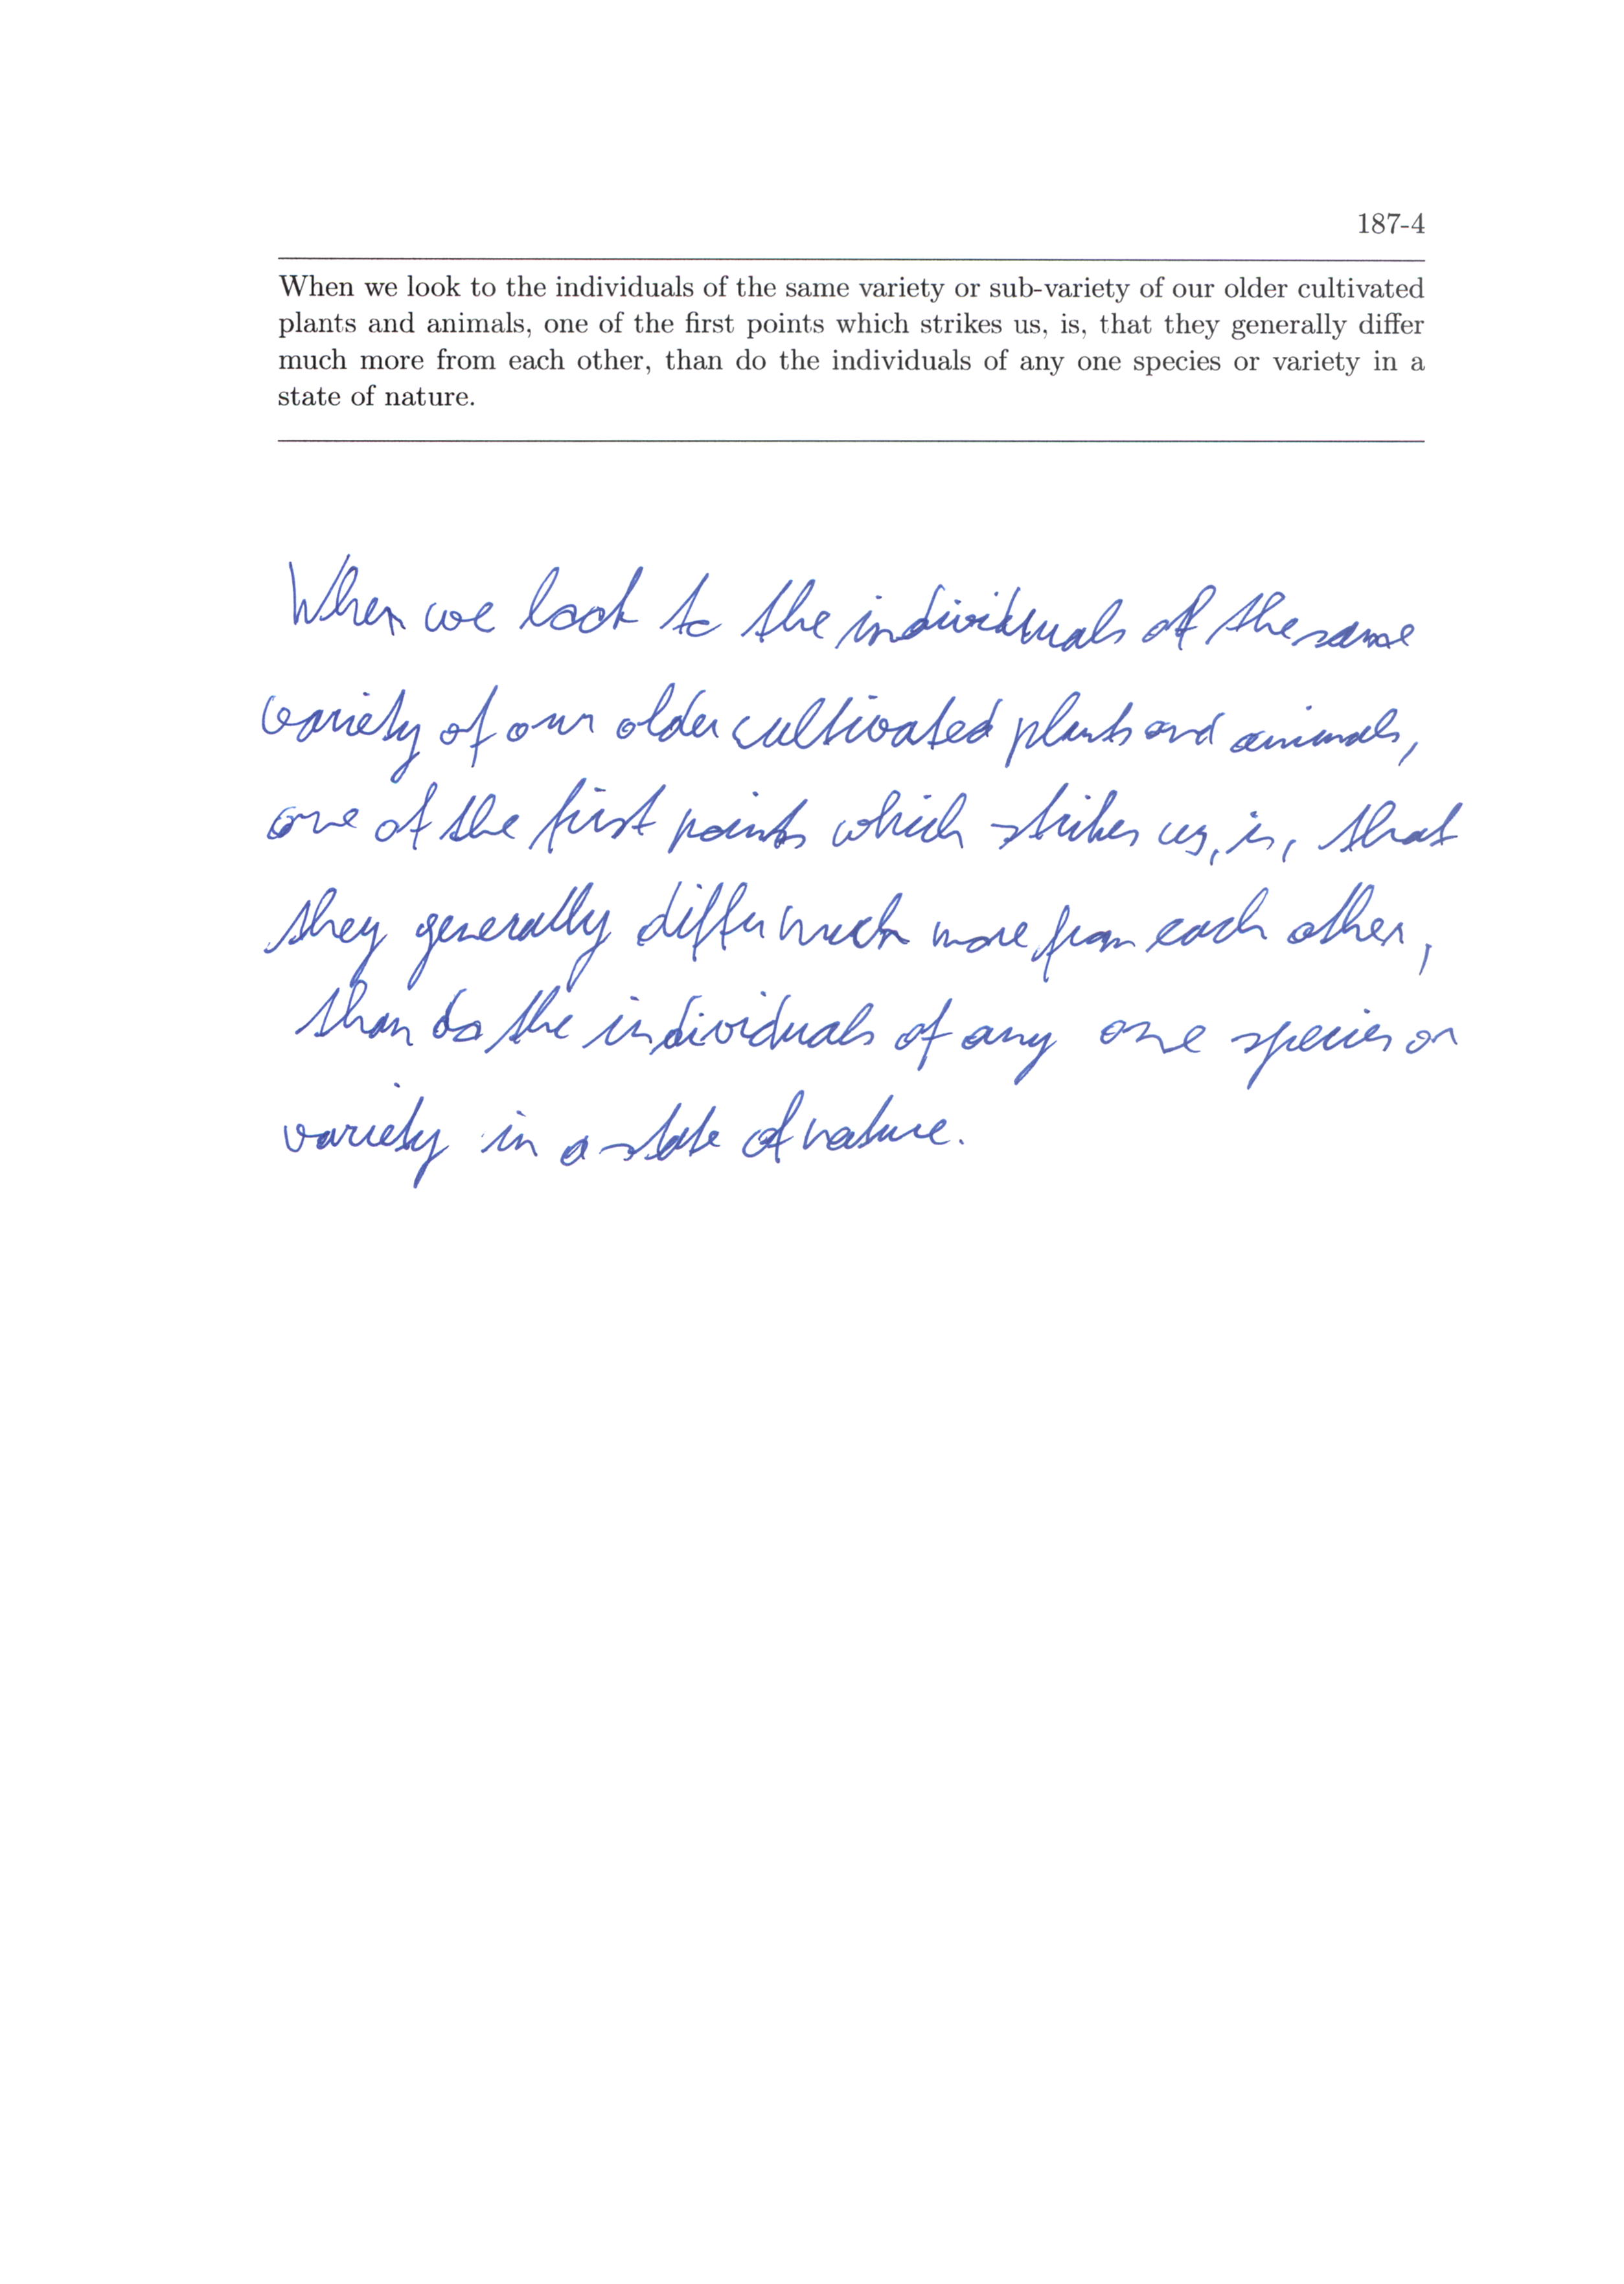 187-4
When we look to the individuals of the same variety or sub-variety of our older cultivated
plants and animals, one of the first points which strikes us, is, that they generally differ
much more from each other, than do the individuals of any one species or variety in a
state of nature.
When we look to the individuals of the same
variety of our older cultivated plants and animals,
one of the first points which strikes us, is, that
they generally differ much more from each other,
than do the individuals of any one species or
variety in a state of nature.